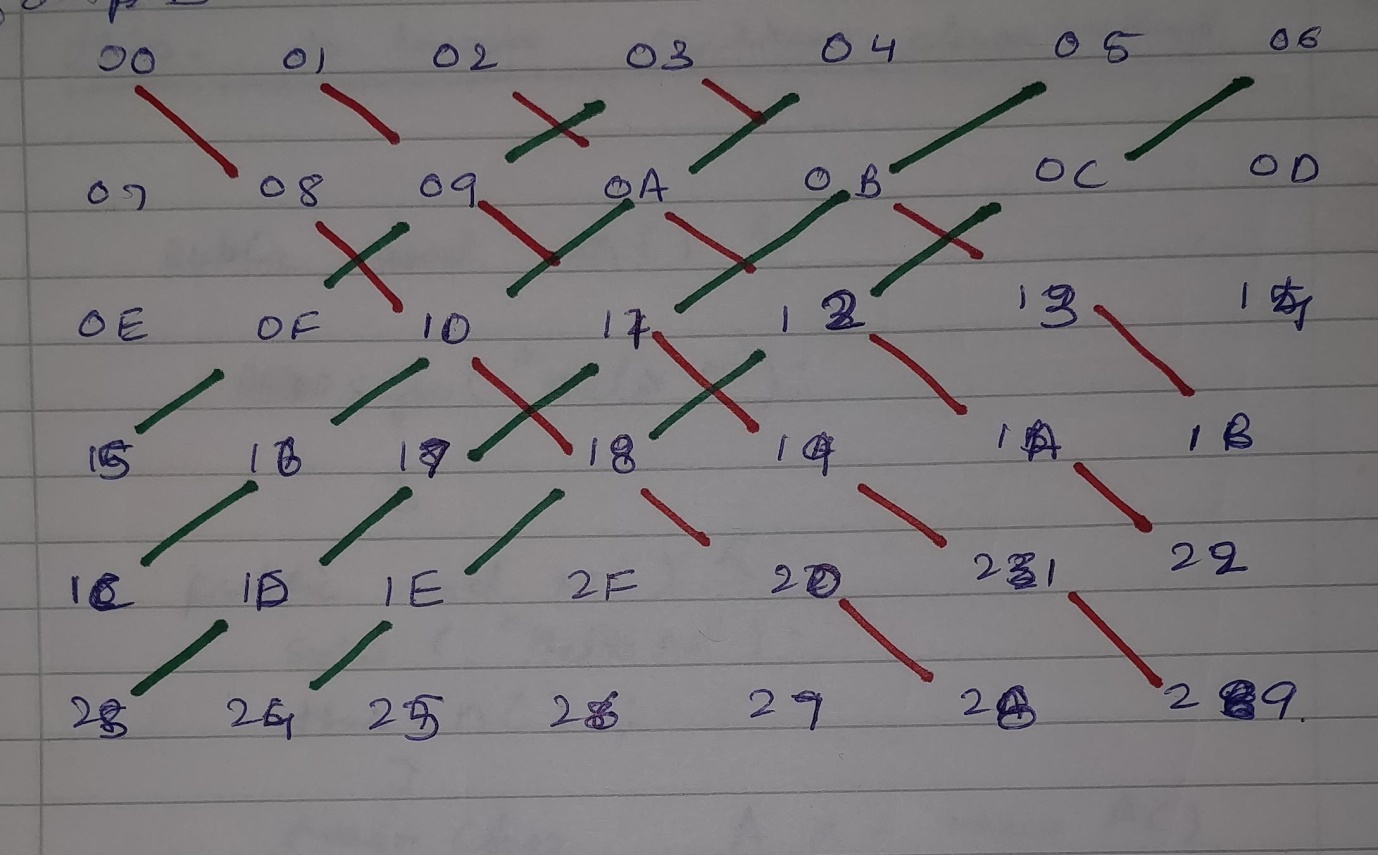 00 01 02 03 04 05 06
07 08 09 0A 0B 0C 0D
0E 0F 10 12 13 14
15 16 17 18 19 1A 1B
1C 1D 1E 2F 20 21 22
23 24 25 26 27 28 29.